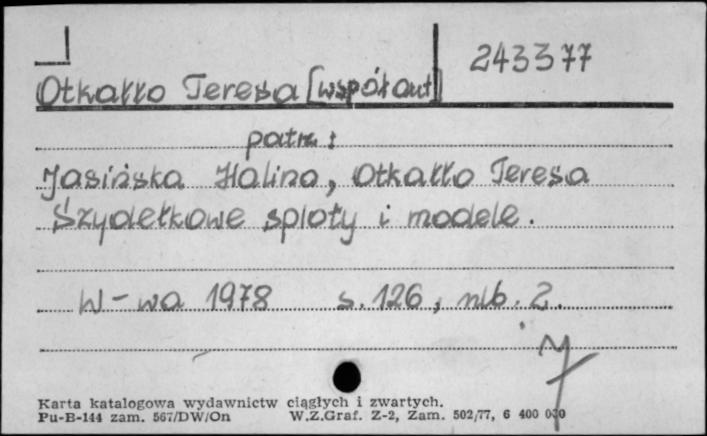 243377
Otkałło Teresa [współaut]
patrz:
Jasińska Halina, Otkałło Teresa
Szydełkowe sploty i modele.
W-wa 1978 s. 126, nlb. 2.
Karta katalogowa wydawnictw ciągłych i zwartych.
Pu-B-144 zam. 567/DW/On W.Z.Graf. Z-2, Zam. 502/77, 6 400 000